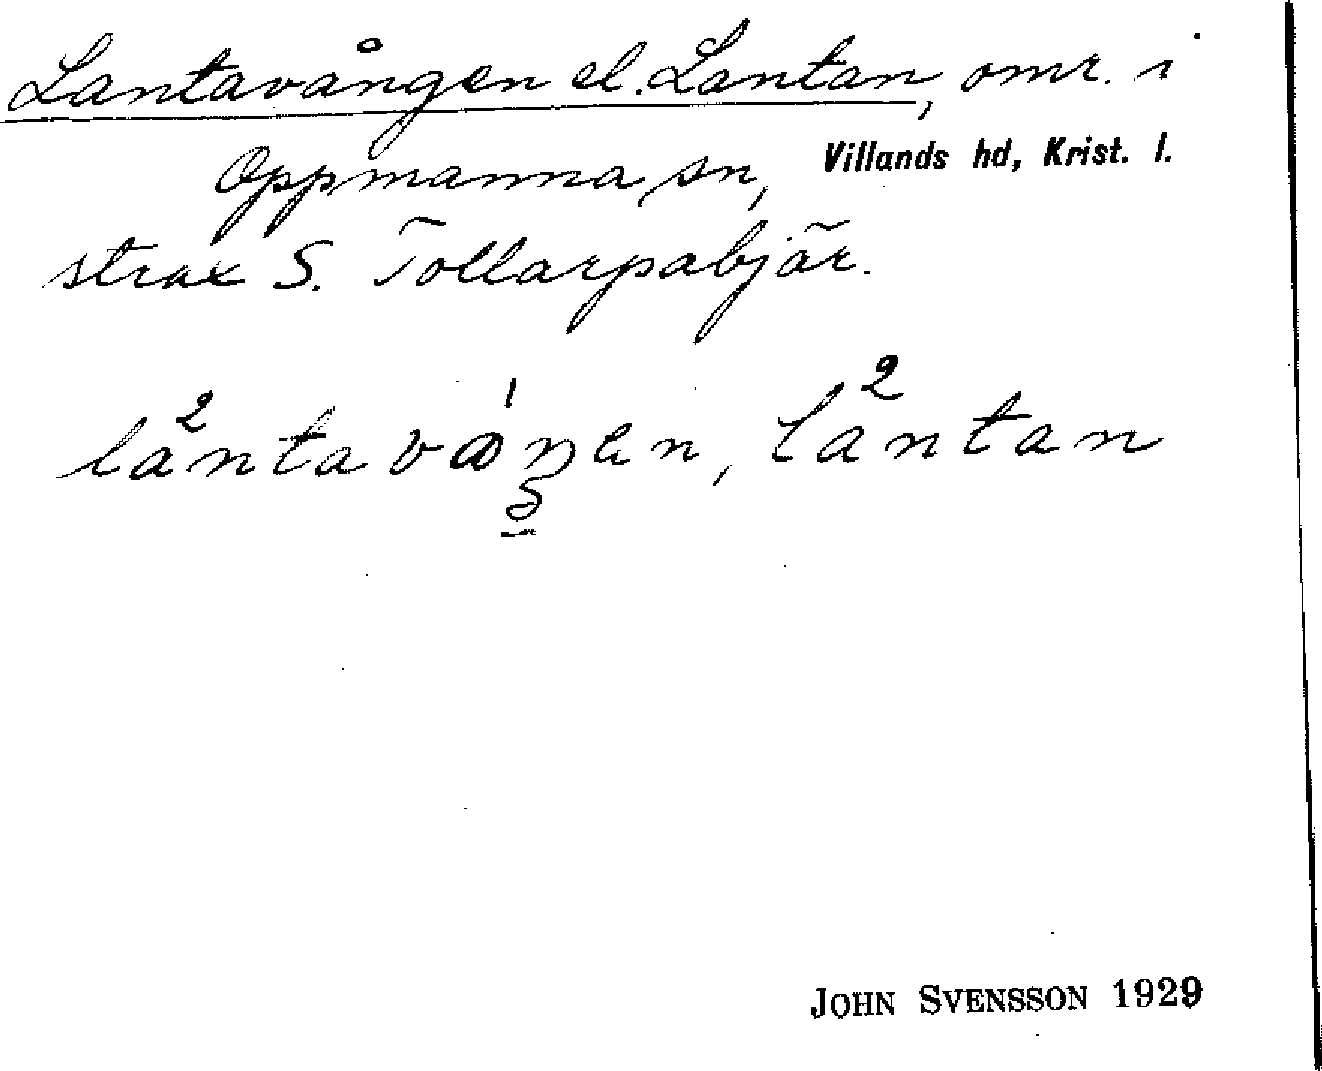 Lantavången el. Lantan, omr. i
Oppmanna sn, Villands hd, Krist. l.
strax S. Tollarpabjär.
la²ntavꝏ́ŋen, la²ntan
JOHN SVENSSON 1929